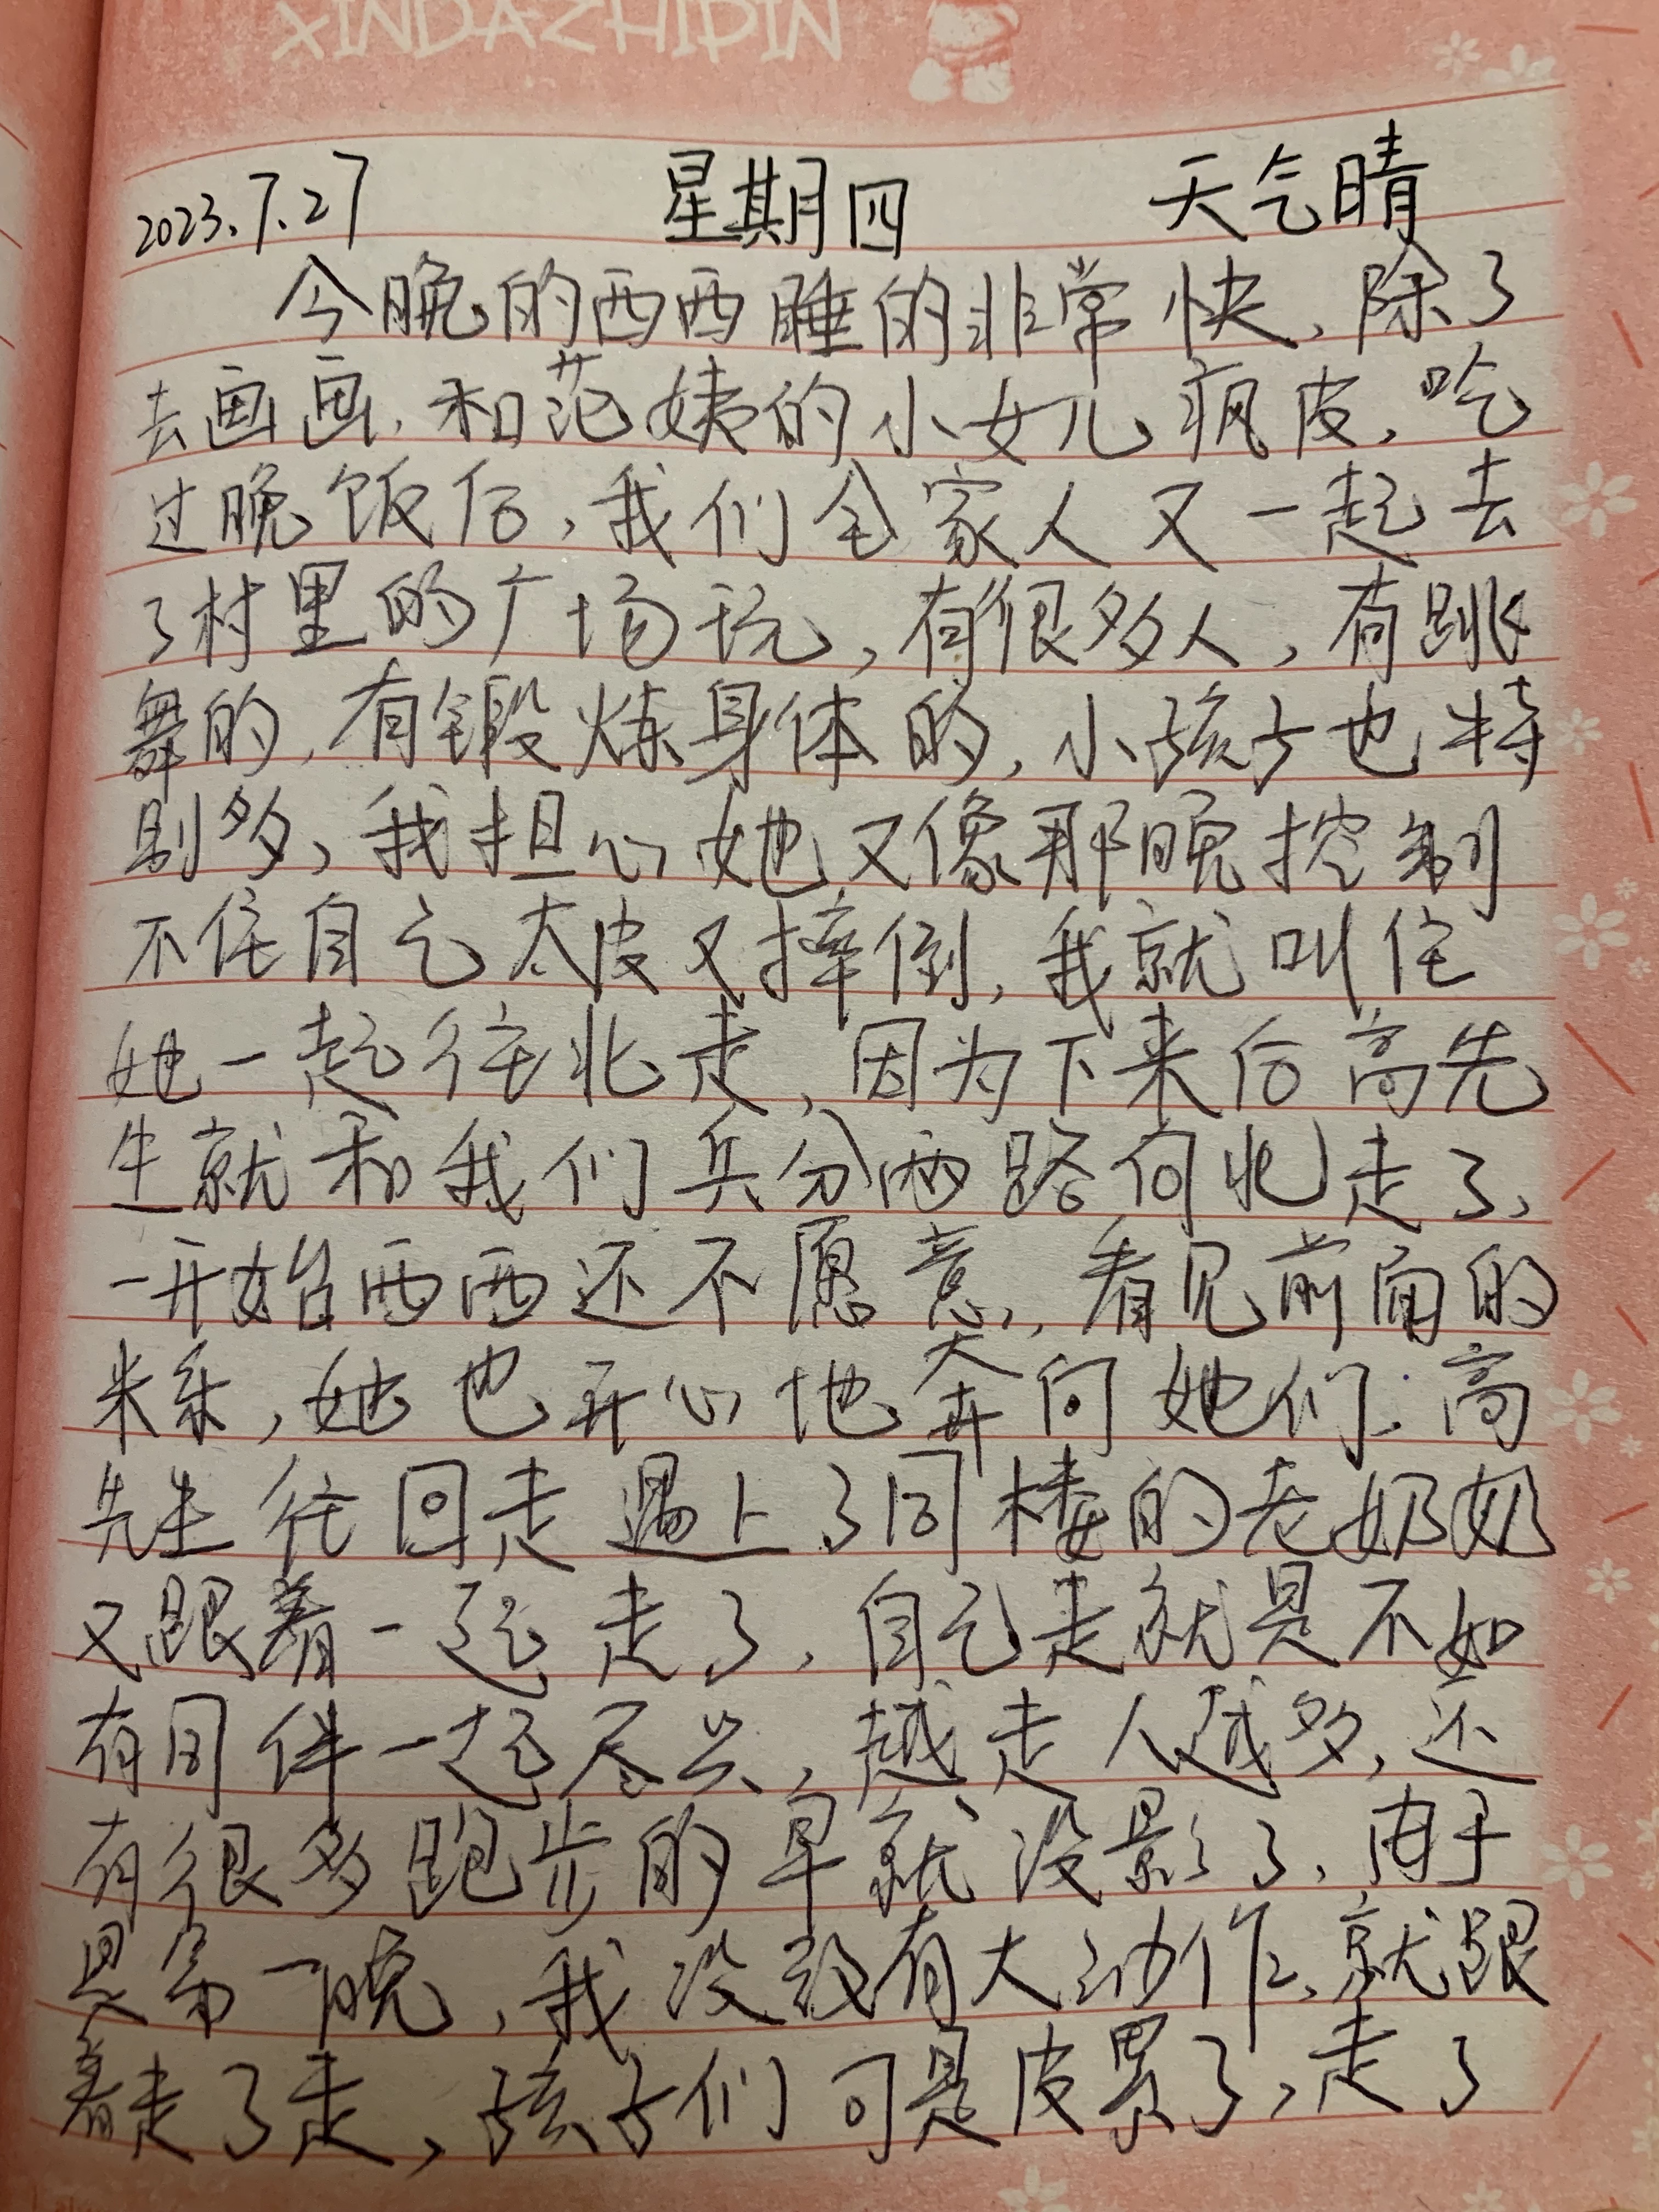 XINDAZHIPIN
2023.7.27 星期四 天气晴
今晚的西西睡的非常快,除了
去画画,和范姨的小女儿疯皮,吃
过晚饭后,我们全家人又一起去
了村里的广场玩,有很多人,有跳
舞的,有锻炼身体的,小孩子也特
别多,我担心她又像那晚控制
不住自己太皮又摔倒,我就叫住
她一起往北走,因为下来后高先
生就和我们兵分两路向北走了,
一开始西西还不愿意,看见前面的
米乐,她也开心地奔向她们.高
先生往回走遇上了同楼的老奶奶
又跟着一起走了,自己走就是不如
有同伴一起尽兴,越走人越多,还
有很多跑步的早就没影了,由于
是第一晚,我没敢有大动作,就跟
着走了走,孩子们可是皮累了,走了